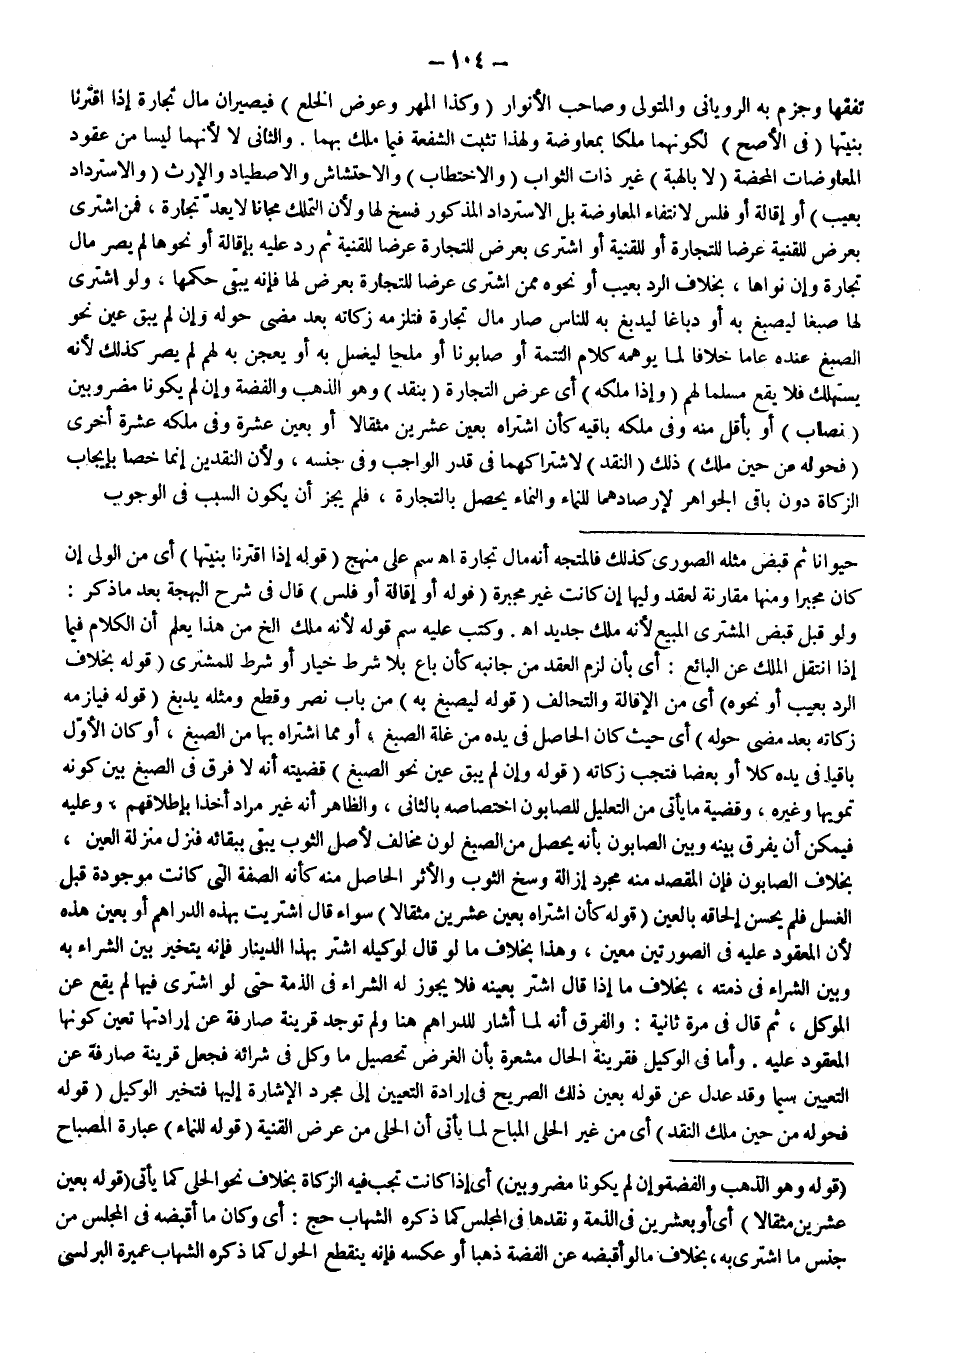 — ١٠٤ —
تفقها وجزم به الرويانى والمتولى وصاحب الأنوار ( وكذا المهر وعوض الخلع ) فيصيران مال تجارة إذا اقترنا
بنيتها ( فى الأصح ) لكونهما ملكا بمعاوضة ولهذا تثبت الشفعة فيما ملك بهما . والثانى لا لأنهما ليسا من عقود
المعاوضات المحضة ( لا بالهبة ) غير ذات الثواب ( والاحتطاب ) والاحتشاش والاصطياد والإرث ( والاسترداد
بعيب ) أو إقالة أو فلس لانتفاء المعاوضة بل الاسترداد المذكور فسخ لها ولأن التملك مجانا لايعدّ تجارة ، فمن اشترى
بعرض للقنية عرضا للتجارة أو للقنية أو اشترى بعرض للتجارة عرضا للقنية ثم رد عليه بإقالة أو نحوها لم يصر مال
تجارة وإن نواها ، بخلاف الرد بعيب أو نحوه ممن اشترى عرضا للتجارة بعرض لها فإنه يبقى حكمها ، ولو اشترى
لها صبغا ليصبغ به أو دباغا ليدبغ به للناس صار مال تجارة فتلزمه زكاته بعد مضى حوله وإن لم يبق عين نحو
الصبغ عنده عاما خلافا لما يوهمه كلام التتمة أو صابونا أو ملحا ليغسل به أو يعجن به لهم لم يصر كذلك لأنه
يستهلك فلا يقع مسلما لهم ( وإذا ملكه ) أى عرض التجارة ( بنقد ) وهو الذهب والفضة وإن لم يكونا مضروبين
( نصاب ) أو بأقل منه وفى ملكه باقيه كأن اشتراه بعين عشرين مثقالا أو بعين عشرة وفى ملكه عشرة أخرى
( فحوله من حين ملك ) ذلك ( النقد ) لاشتراكهما فى قدر الواجب وفى جنسه ، ولأن النقدين إنما خصا بإيجاب
الزكاة دون باقى الجواهر لإرصادهما للنماء والنماء يحصل بالتجارة ، فلم يجز أن يكون السبب فى الوجوب
حيوانا ثم قبض مثله الصورى كذلك فالمتجه أنه مال تجارة اه سم على منهج ( قوله إذا اقترنا بنيتها ) أى من الولى إن
كان مجبرا ومنها مقارنة لعقد وليها إن كانت غير مجبرة ( قوله أو إقالة أو فلس ) قال فى شرح البهجة بعد ماذكر :
ولو قبل قبض المشترى المبيع لأنه ملك جديد اه . وكتب عليه سم قوله لأنه ملك الخ من هذا يعلم أن الكلام فيما
إذا انتقل الملك عن البائع : أى بأن لزم العقد من جانبه كأن باع بلا شرط خيار أو شرط للمشترى ( قوله بخلاف
الرد بعيب أو نحوه) أى من الإقالة والتحالف ( قوله ليصبغ به ) من باب نصر وقطع ومثله يدبغ ( قوله فيلزمه
زكاته بعد مضى حوله ) أى حيث كان الحاصل فى يده من غلة الصبغ ، أو مما اشتراه بها من الصبغ ، أو كان الأوّل
باقيا فى يده كلا أو بعضا فتجب زكاته ( قوله وإن لم يبق عين نحو الصبغ ) قضيته أنه لا فرق فى الصبغ بين كونه
تمويها وغيره ، وقضية مايأتى من التعليل للصابون اختصاصه بالثانى ، والظاهر أنه غير مراد أخذا بإطلاقهم ، وعليه
فيمكن أن يفرق بينه وبين الصابون بأنه يحصل من الصبغ لون مخالف لأصل الثوب يبقى ببقائه فنزل منزلة العين ،
بخلاف الصابون فإن المقصد منه مجرد إزالة وسخ الثوب والأثر الحاصل منه كأنه الصفة التى كانت موجودة قبل
الغسل فلم يحسن إلحاقه بالعين ( قوله كأن اشتراه بعين عشرين مثقالا ) سواء قال اشتريت بهذه الدراهم أو بعين هذه
لأن المعقود عليه فى الصورتين معين ، وهذا بخلاف ما لو قال لوكيله اشتر بهذا الدينار فإنه يتخير بين الشراء به
وبين الشراء فى ذمته ، بخلاف ما إذا قال اشتر بعينه فلا يجوز له الشراء فى الذمة حتى لو اشترى فيها لم يقع عن
الموكل ، ثم قال فى مرة ثانية : والفرق أنه لما أشار للدراهم هنا ولم توجد قرينة صارفة عن إرادتها تعين كونها
المعقود عليه . وأما فى الوكيل فقرينة الحال مشعرة بأن الغرض تحصيل ما وكل فى شرائه فجعل قرينة صارفة عن
التعيين سيما وقد عدل عن قوله بعين ذلك الصريح فى إرادة التعيين إلى مجرد الإشارة إليها فتخير الوكيل ( قوله
فحوله من حين ملك النقد ) أى من غير الحلى المباح لما يأتى أن الحلى من عرض القنية ( قوله للنماء ) عبارة المصباح
(قوله وهو الذهب والفضة وإن لم يكونا مضروبين) أى إذا كانت تجب فيه الزكاة بخلاف نحو الحلى كما يأتى (قوله بعين
عشرين مثقالا ) أى أو بعشرين فى الذمة ونقدها فى المجلس كما ذكره الشهاب حج : أى وكان ما أقبضه فى المجلس من
جنس ما اشترى به ، بخلاف مالو أقبضه عن الفضة ذهبا أو عكسه فإنه ينقطع الحول كما ذكره الشهاب عميرة البرلسى